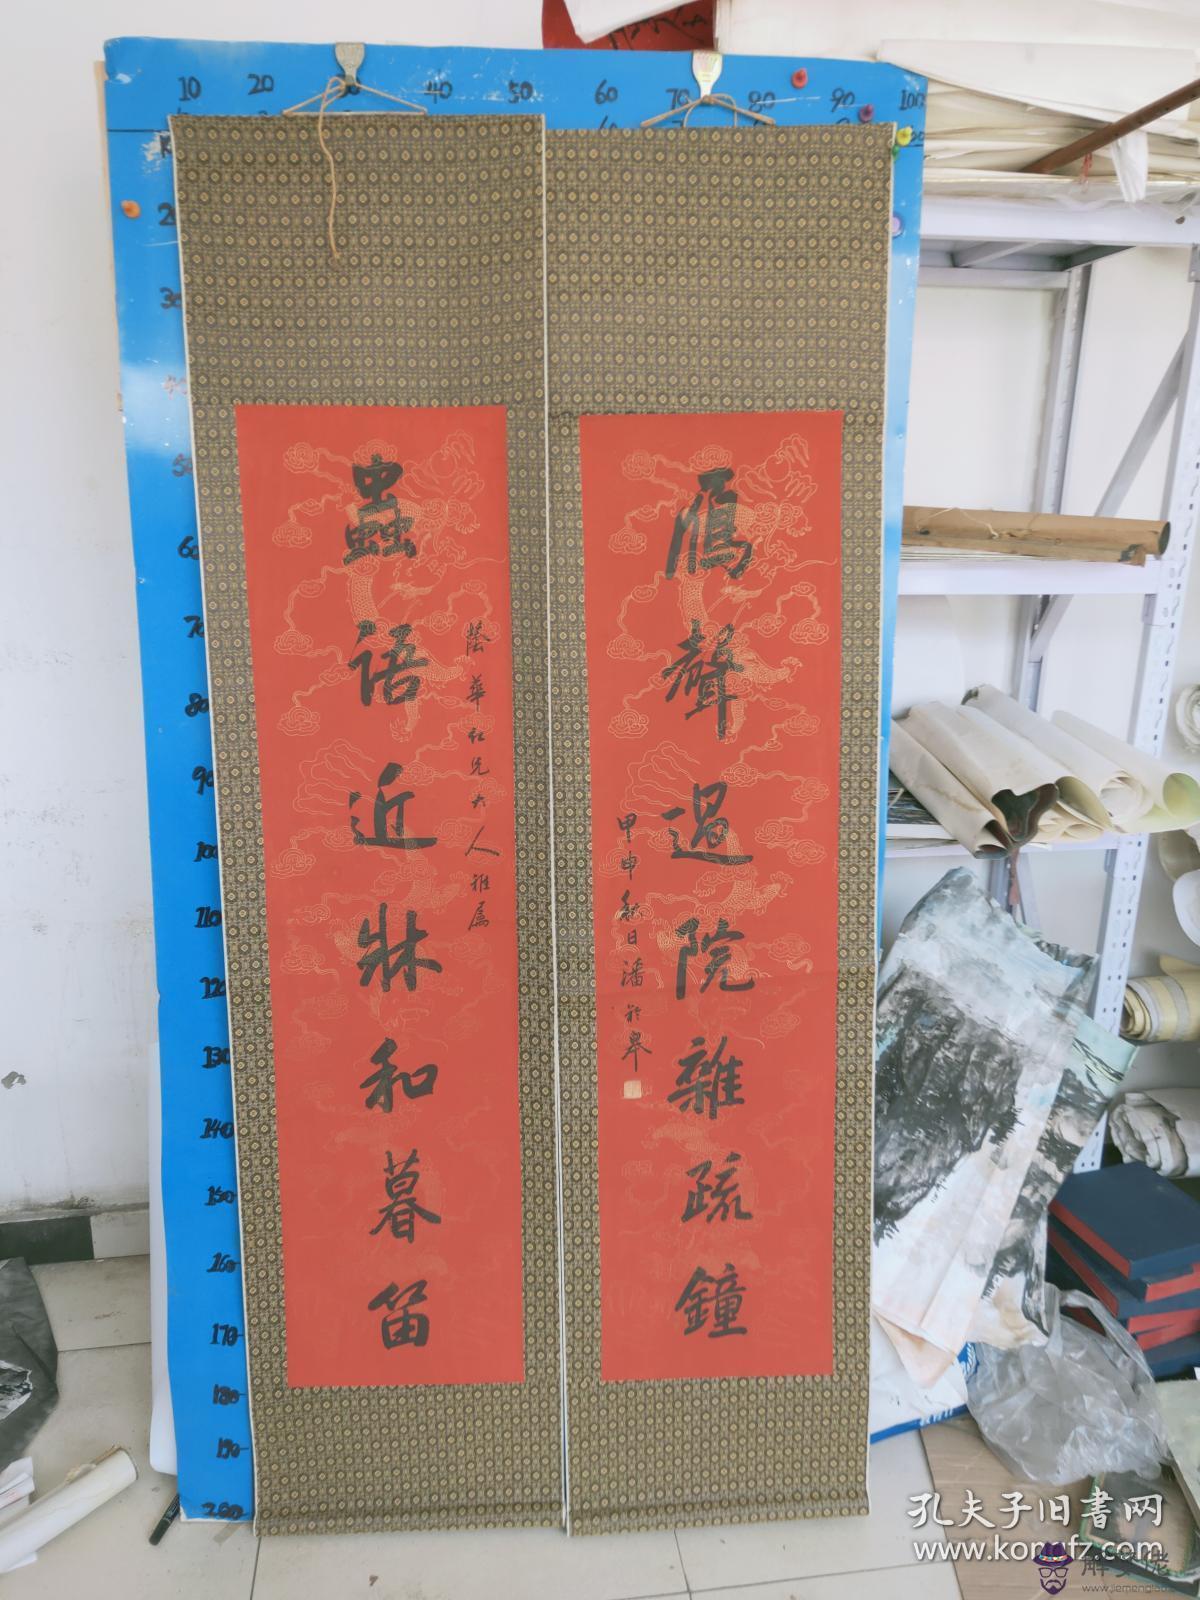 10 20 30 40 50 60 70 80 90 100
蟲語近牀和暮笛
蔭華仁兄大人雅屬
雁聲過院雜疏鐘
甲申秋日潘齡皋
60
70
80
90
100
110
120
130
140
150
160
170
180
190
200
孔夫子旧书网
www.kongfz.com
解梦佬
www.jiemenglao.com